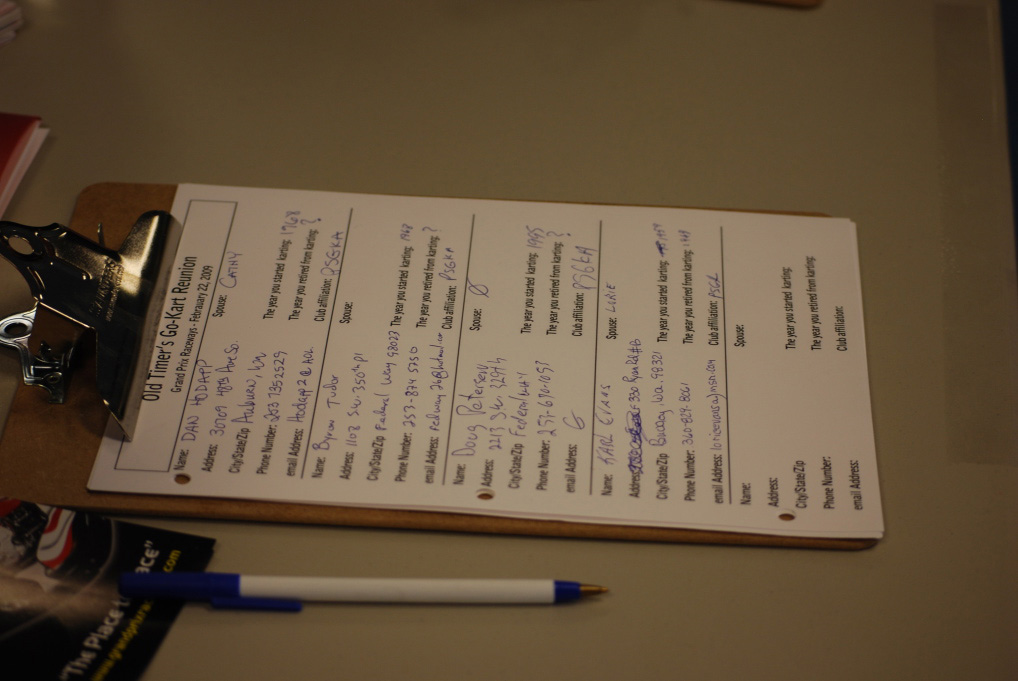 Old Timer's Go-Kart Reunion
Grand Prix Raceways - February 22, 2009
Name: DAN HODAPP Spouse: CATHY
Address: 30709 40th Ave So.
City/State/Zip Auburn Wa
Phone Number: 253 7352529 The year you started karting:
email Address: Hodapp2@AOL The year you retired from karting: ?
Club affiliation: PSGKA
Name: Byron Tudor Spouse:
Address: 1102 S.W. 350th Pl
City/State/Zip Federal Way 98023
Phone Number: 253-874 5250 The year you started karting: 1968
email Address: The year you retired from karting: ?
Club affiliation: PSGKA
Name: Doug Peterson Spouse: Ø
Address: 2213 S.W. 329th
City/State/Zip Federal Way
Phone Number: 253-670-1057 The year you started karting: 1995
email Address: The year you retired from karting: ?
Club affiliation: PSGKA
Name: KARL EVANS Spouse: LORIE
Address: 330 Ryan Rd #6
City/State/Zip Buckley, Wa. 98321 The year you started karting: 1959
Phone Number: 360-829-8061 The year you retired from karting: 1969
email Address: Club affiliation:
Name: Spouse:
Address:
City/State/Zip The year you started karting:
Phone Number: The year you retired from karting:
email Address: Club affiliation:
"The Place